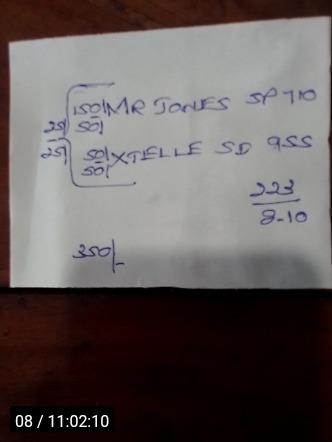 150/ MR JONES SP 710
50/
25/
25/
50/ XTELLE SD 955
50/
223
8-10
350/-
08 / 11:02:10